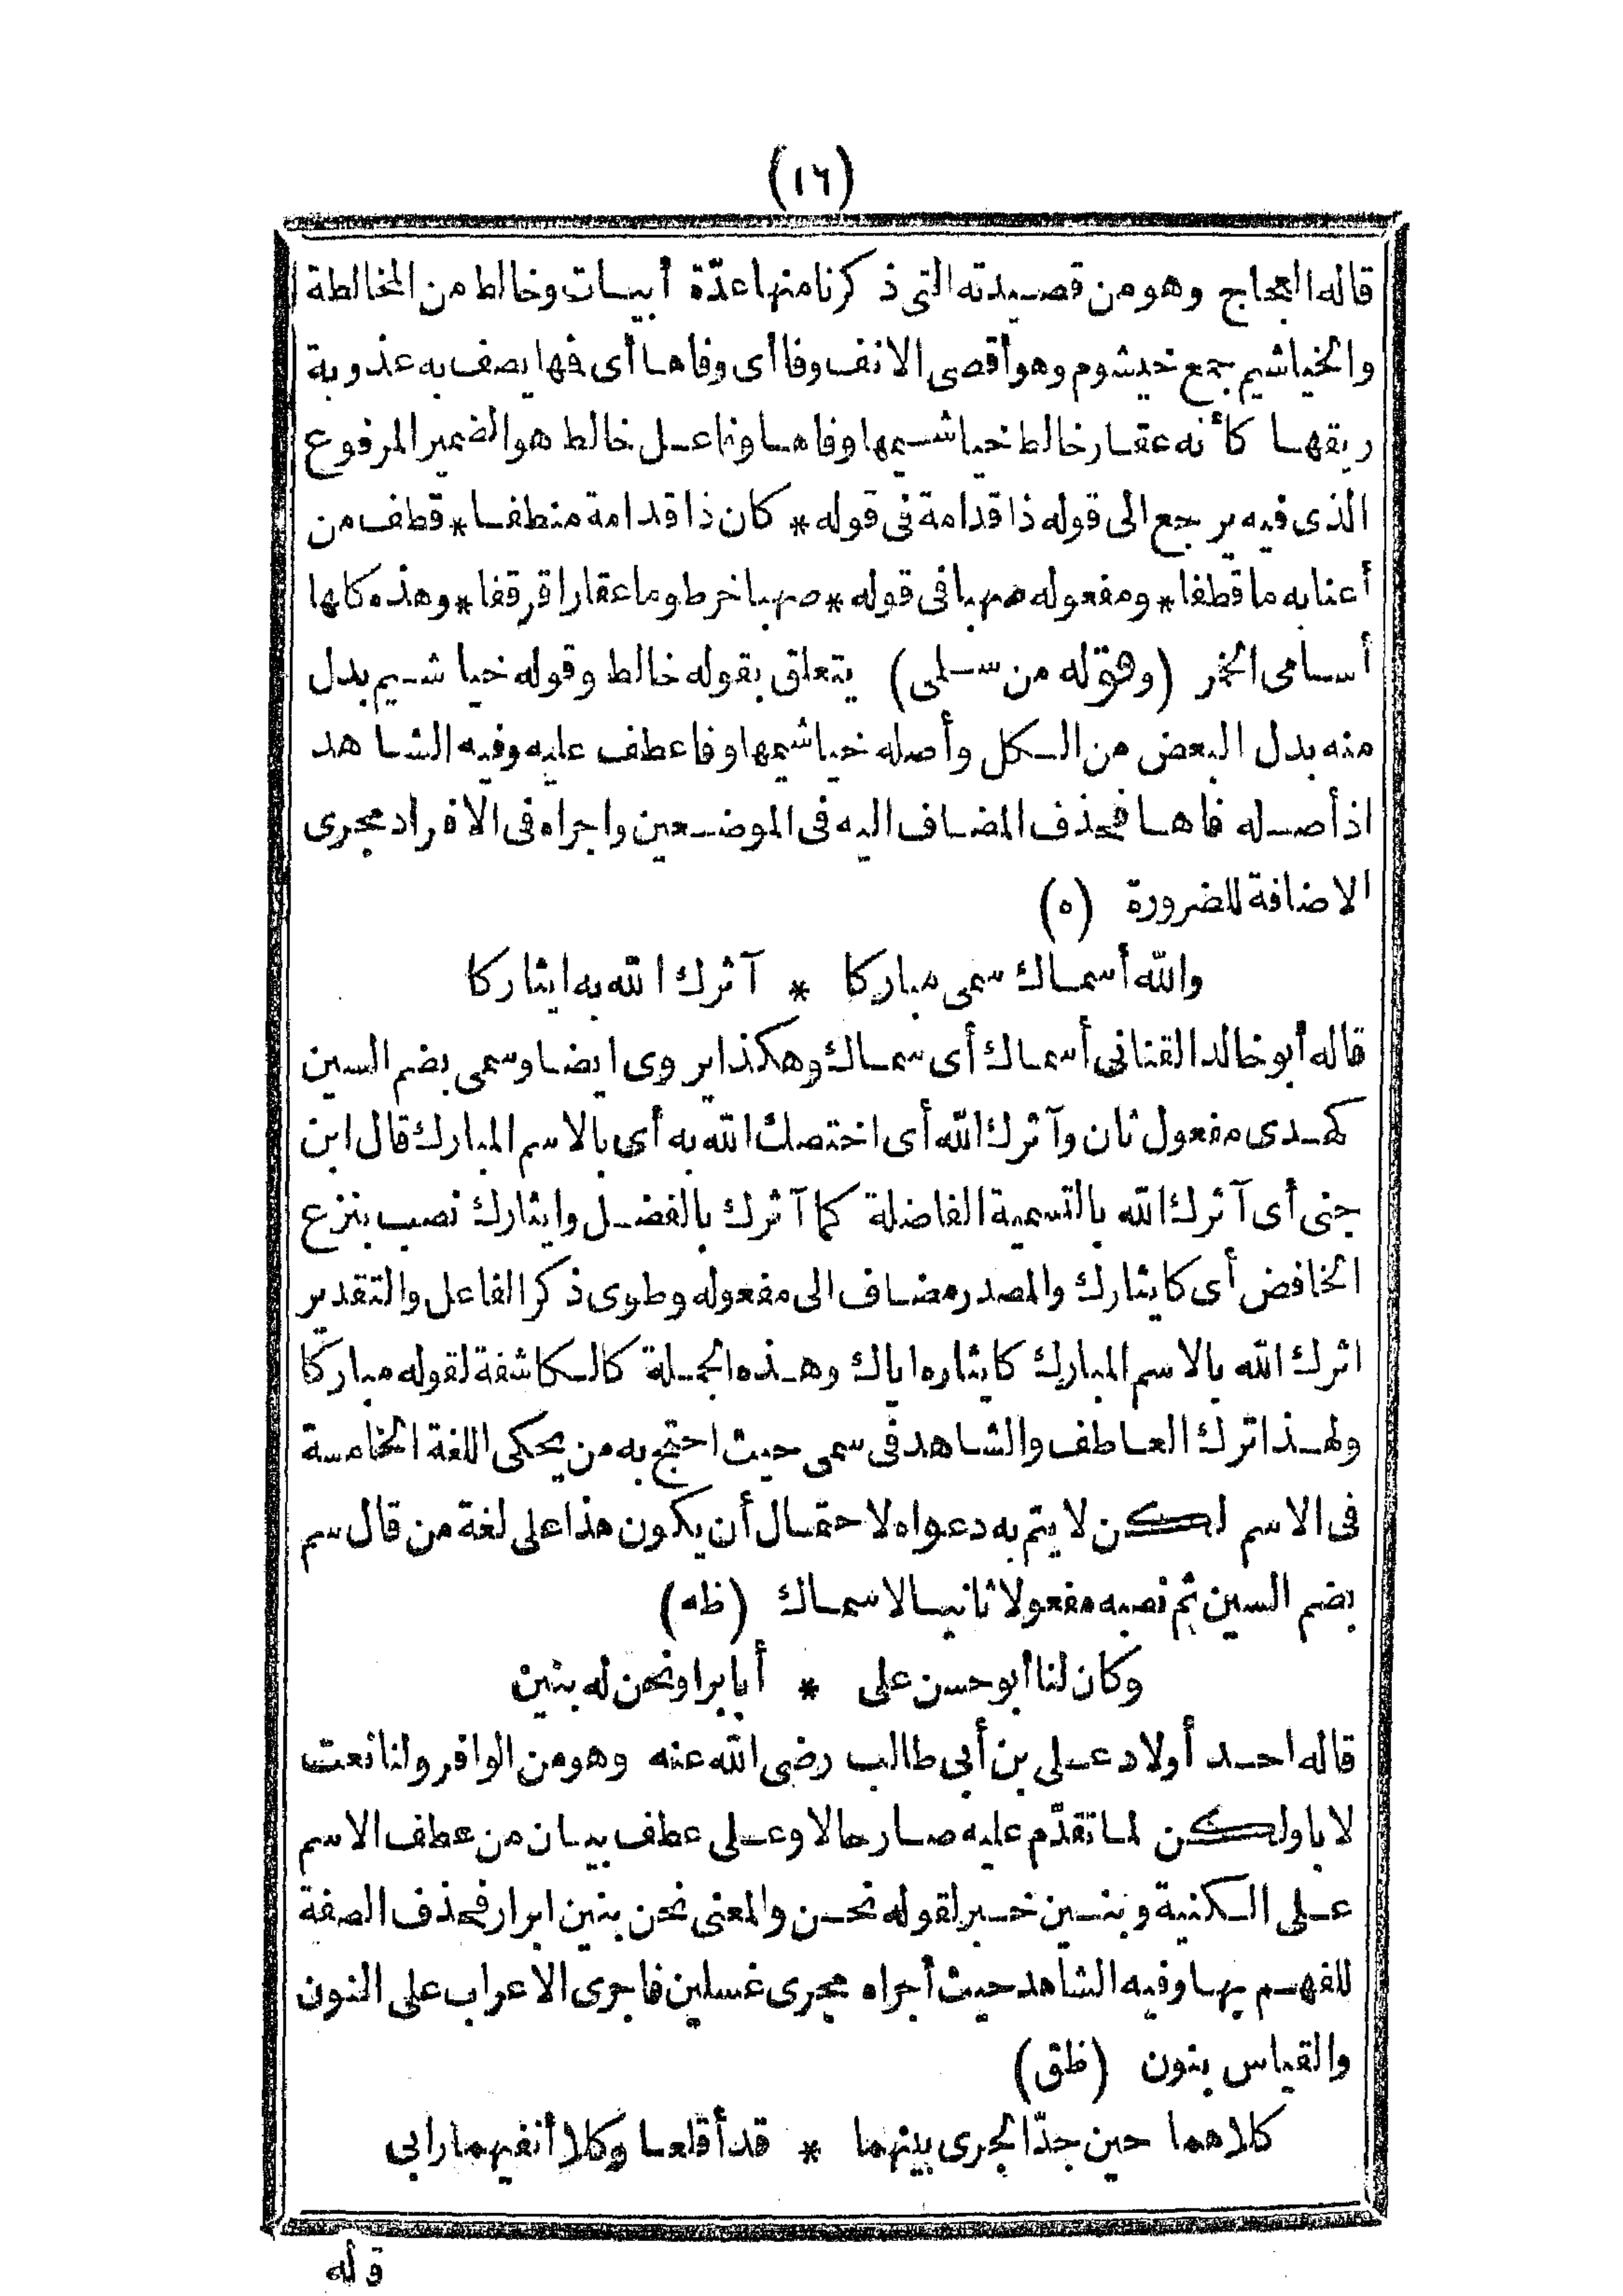 (١٦)
قاله العجاج وهو من قصيدته التى ذكرنا منها عدّة أبيات وخالط من المخالطة
والخياشيم جمع خيشوم وهو أقصى الانف وفا أى وفاها أى فمها يصف به عذوبة
ريقها كأنه عقار خالط خياشيمها وفاها وفاعل خالط هو الضمير المرفوع
الذى فيه يرجع الى قوله ذا قدامة فى قوله * كان ذا قدامة منطفا * قطف من
أعنابه ما قطفا * ومفعوله صهبا فى قوله * صهبا خرطوما عقارا قرقفا * وهذه كلها
أسامى الخمر (وقوله من سلمى) يتعلق بقوله خالط وقوله خياشيم بدل
منه بدل البعض من الكل وأصله خياشيمها وفا عطف عليه وفيه الشاهد
اذ أصله فاها فحذف المضاف اليه فى الموضعين واجراه فى الافراد مجرى
الاضافة للضرورة (ه)
والله أسماك سمى مباركا * آثرك الله به ايثاركا
قاله أبو خالد القنانى أسماك أى سماك وهكذا يروى ايضا وسمى بضم السين
كهدى مفعول ثان وآثرك الله أى اختصك الله به أى بالاسم المبارك قال ابن
جنى أى آثرك الله بالتسمية الفاضلة كما آثرك بالفضل وايثارك نصب بنزع
الخافض أى كايثارك والمصدر مضاف الى مفعوله وطوى ذكر الفاعل والتقدير
اثرك الله بالاسم المبارك كايثاره اياك وهذه الجملة كالكاشفة لقوله مباركا
ولهذا ترك العاطف والشاهد فى سمى حيث احتج به من يحكى اللغة الخامسة
فى الاسم لكن لا يتم به دعواه لاحتمال أن يكون هذا على لغة من قال سم
بضم السين ثم نصبه مفعولا ثانيا لاسماك (ظه)
وكان لنا أبو حسن على * أبا برا ونحن له بنين
قاله احد أولاد على بن أبى طالب رضى الله عنه وهو من الوافر ولنا نعت
لابا ولكن لما تقدّم عليه صار حالا وعلى عطف بيان من عطف الاسم
على الكنية وبنين خبر لقوله نحن والمعنى نحن بنين ابرار فحذف الصفة
للفهم بها وفيه الشاهد حيث أجراه مجرى غسلين فاجرى الاعراب على النون
والقياس بنون (ظق)
كلاهما حين جدّ الجرى بينهما * قد أقلعا وكلا أنفيهما رابى
قوله